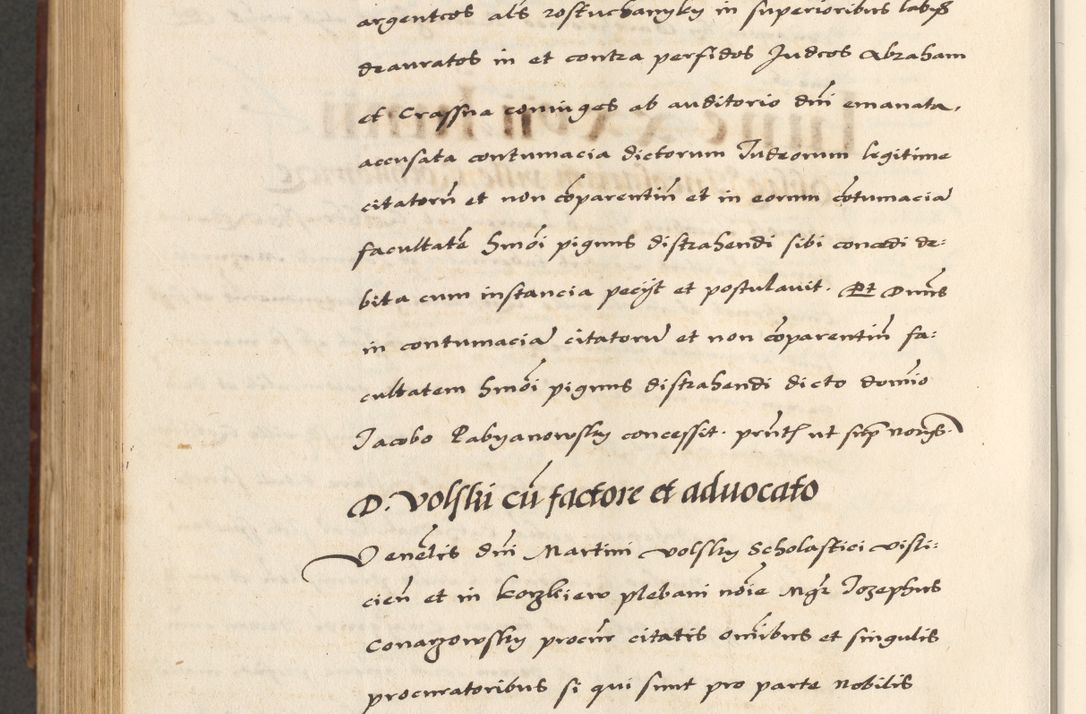 argenteos als rostuchanyky in superioribus labijs
deauratos in et contra perfidos Judeos Abraham
et Crassna coniuges ab auditorio dni emanata,
accusata contumacia dictorum Iudeorum legitime
citatorum et non comparentium et in eorum contumacia
facultate hmoi pignus distrahendi sibi concedi de:
bita cum instancia pecijt et postulavit. Et Dnus
in contumacia citatoru et non comparentiu fa:
cultatem hmoi pignus distrahendi dicto domino
Jacobo Pabyanowsky concessit. prntt ut supra
D. Volski cu factore et aduocato
Venelis dni Martini volsky Scholastici visli:
cien et in korzkiew plebani noie Mgr Iozephus
Conarzowsky procur citatis omibus et singulis
procuratoribus si qui sunt pro parte Nobilis